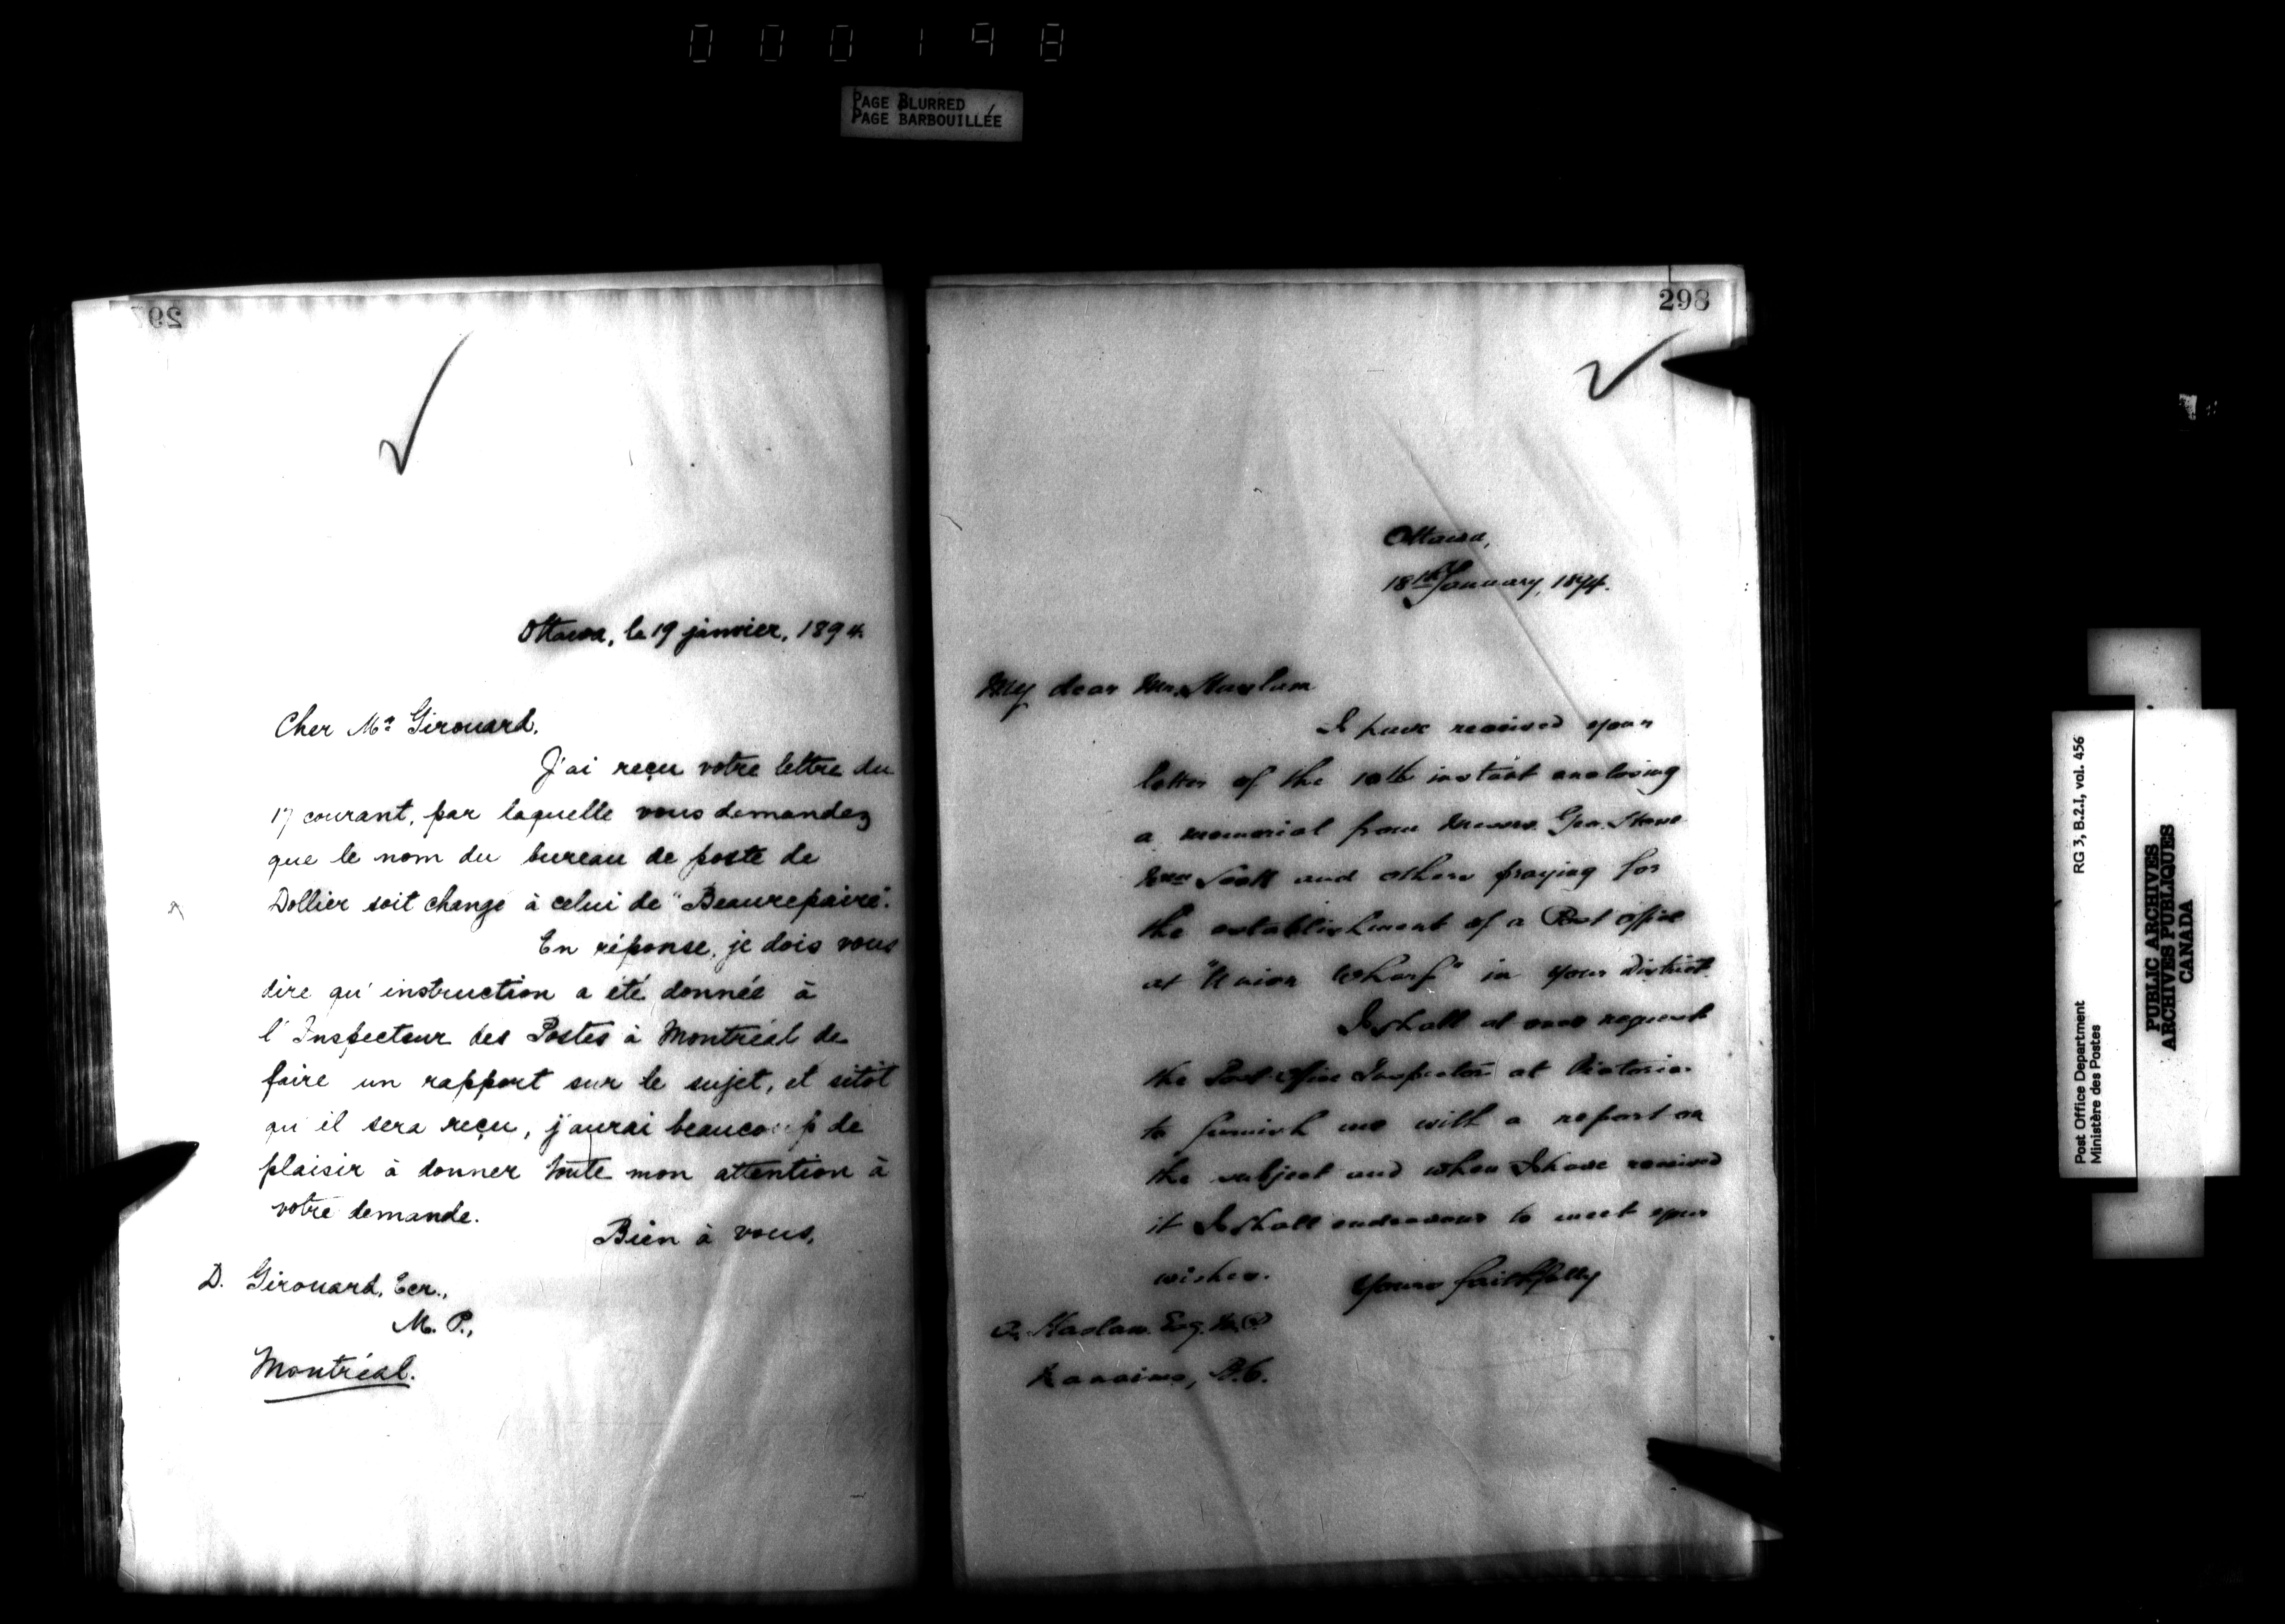 000198
PAGE BLURRED
PAGE BARBOUILLÉE
297
Ottawa, le 19 janvier, 1894.
Cher Mr Girouard,
J'ai reçu votre lettre du
17 courant, par laquelle vous demandez
que le nom du bureau de poste de
Dollier soit changé à celui de "Beaurepaire".
En réponse, je dois vous
dire qu'instruction a été donnée à
l'Inspecteur des Postes à Montréal de
faire un rapport sur le sujet, et sitôt
qu'il sera reçu, j'aurai beaucoup de
plaisir à donner toute mon attention à
votre demande.
Bien à vous,
D. Girouard, Ecr.,
M. P.,
Montréal.
298
Ottawa,
18th January, 1894.
My dear Mr. Haslam
I have received your
letter of the 10th instant enclosing
a memorial from Messrs. Geo.
Wm Scott and others praying for
the establishment of a Post office
at "Union Wharf" in your District.
I shall at once request
the Post Office Inspector at Victoria
to furnish me with a report on
the subject and when I have received
it I shall endeavour to meet your
wishes.
Yours faithfully
A. Haslam Esq. M.P.
Nanaimo, B.C.
RG 3, B.2.I, vol. 456
Post Office Department
Ministère des Postes
PUBLIC ARCHIVES
ARCHIVES PUBLIQUES
CANADA